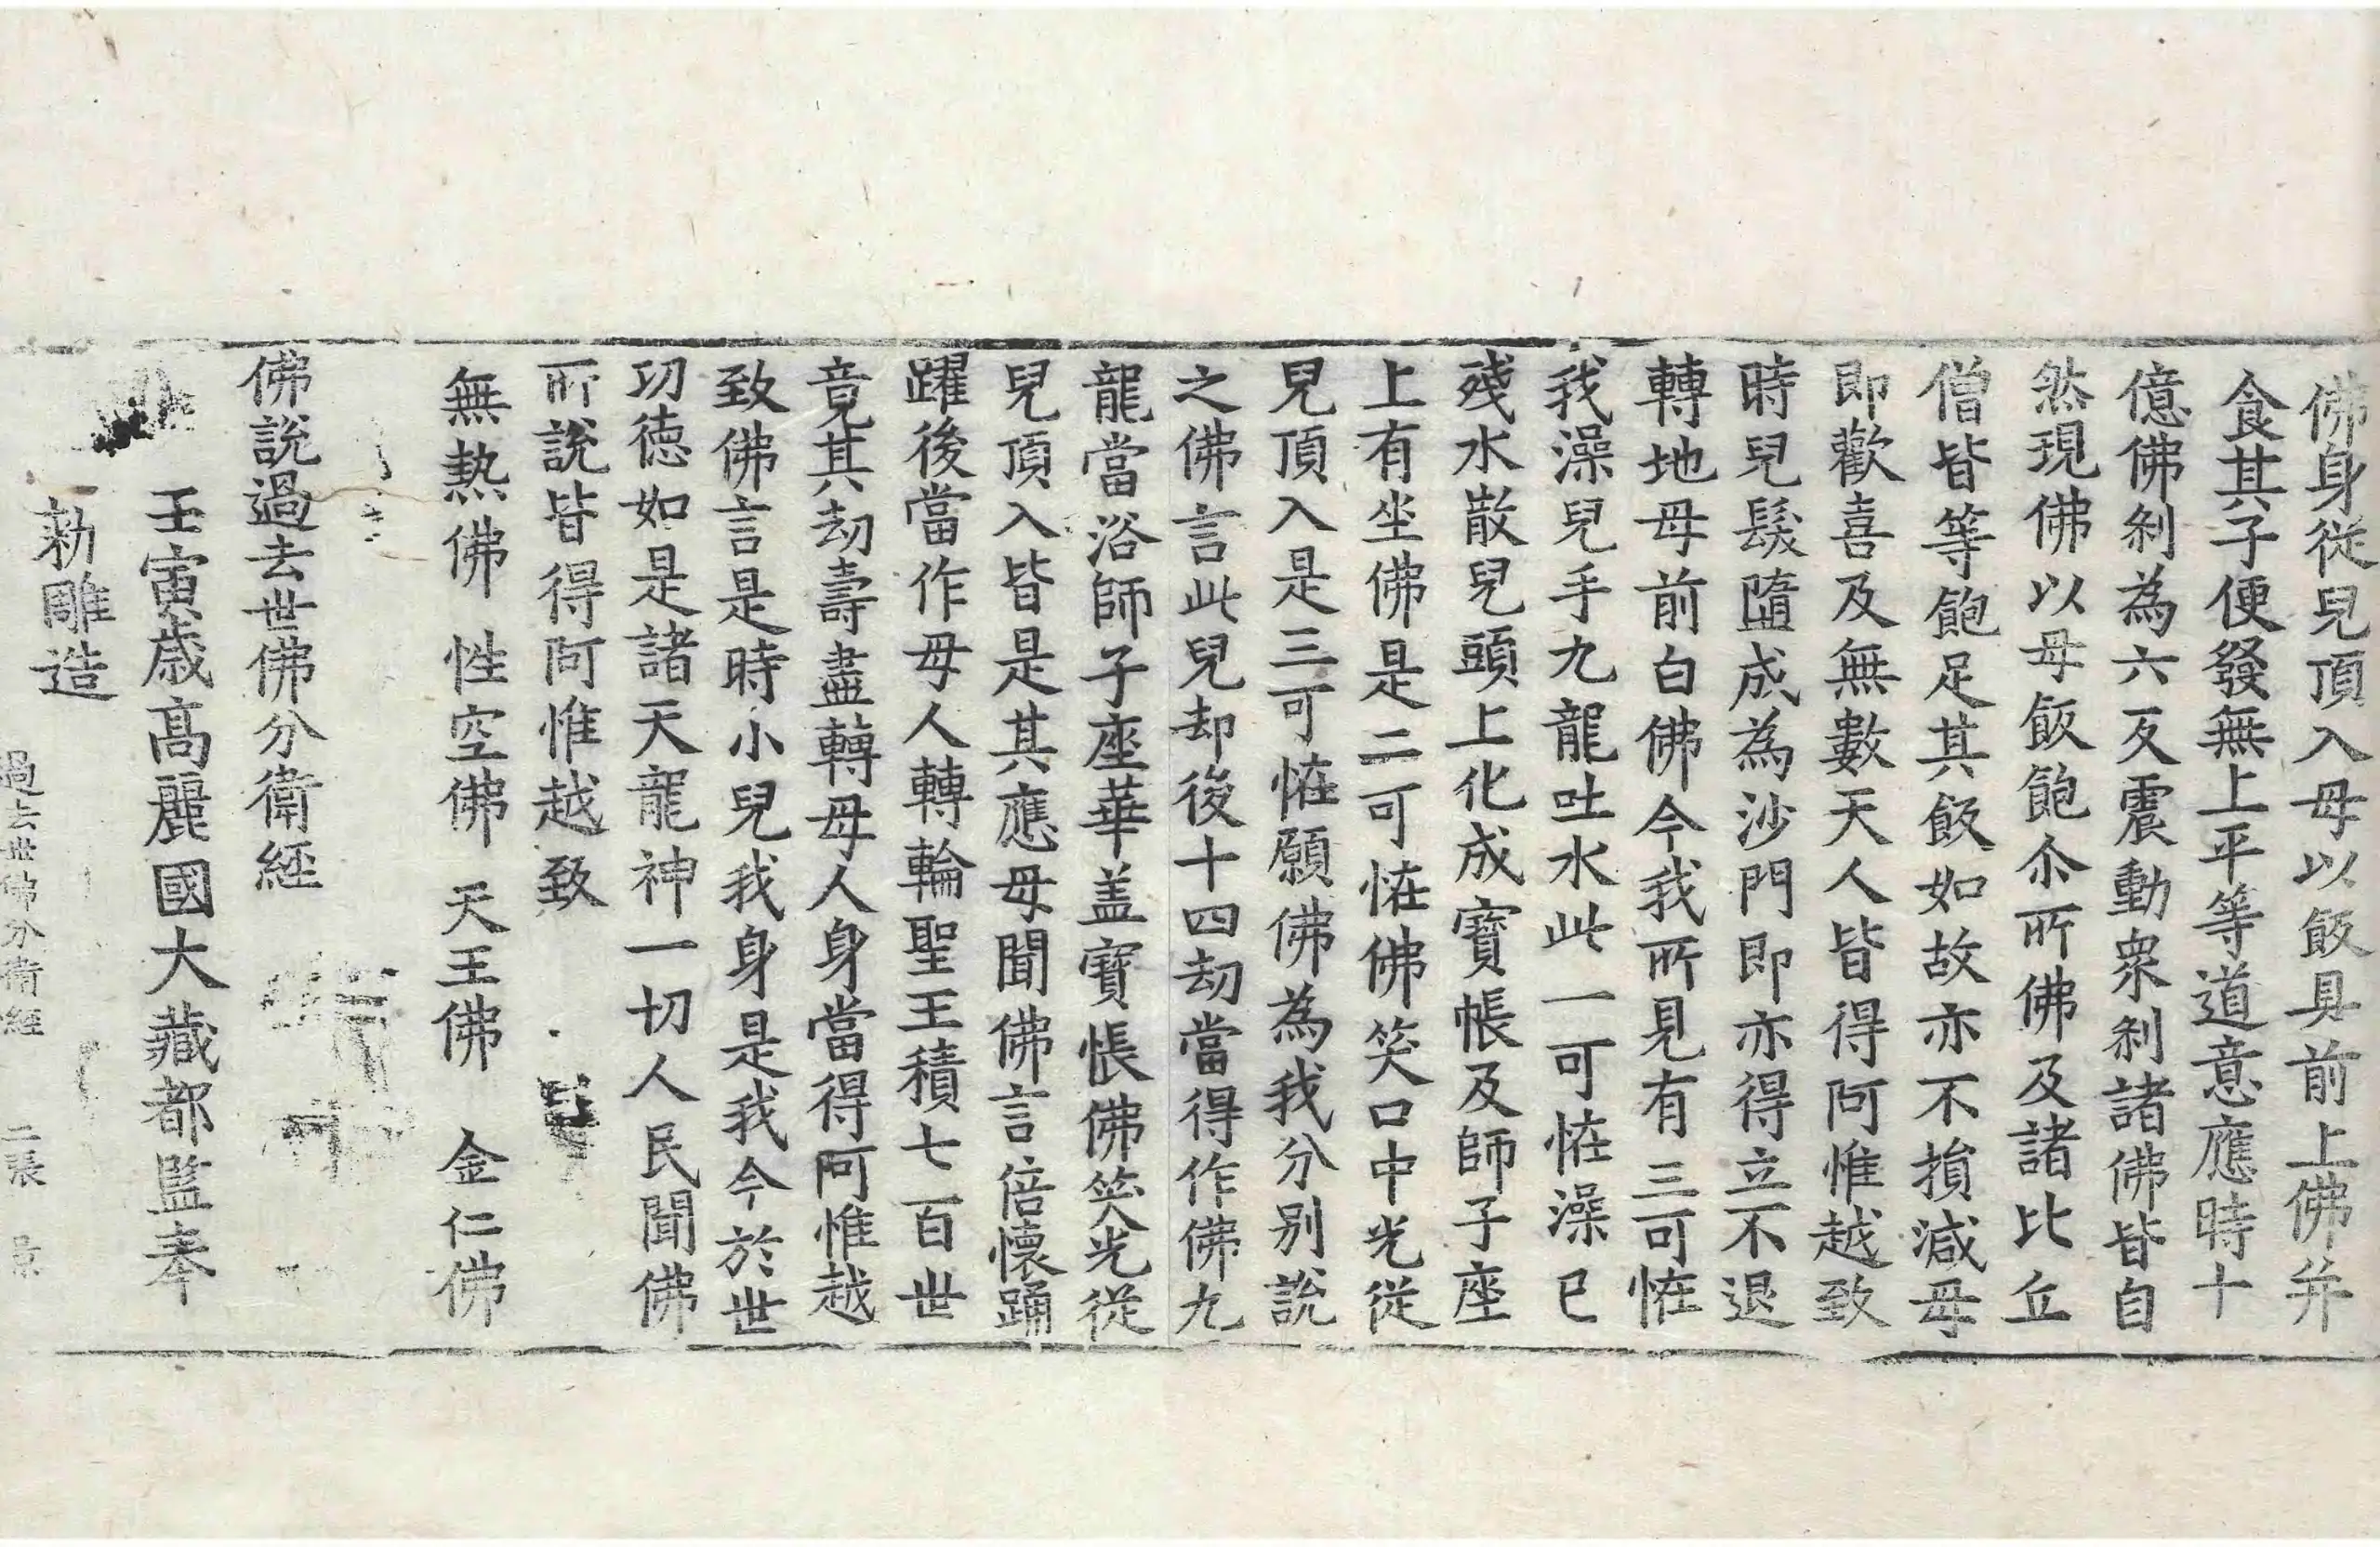 佛身從兒頂入母以飯具前上佛并
食其子便發無上平等道意應時十
億佛剎為六反震動衆剎諸佛皆自
然現佛以母飯飽尒所佛及諸比丘
僧皆等飽足其飯如故亦不損減母
即歡喜及無數天人皆得阿惟越致
時兒髮墮成為沙門即亦得立不退
轉地母前白佛今我所見有三可恠
我澡兒手九龍吐水此一可恠澡已
殘水散兒頭上化成寶帳及師子座
上有坐佛是二可恠佛笑口中光從
兒頂入是三可恠願佛為我分別說
之佛言此兒却後十四劫當得作佛九
龍當浴師子座華盖寶帳佛笑光從
兒頂入皆是其應母聞佛言倍懷踊
躍後當作母人轉輪聖王積七百世
竟其劫壽盡轉母人身當得阿惟越
致佛言是時小兒我身是我今於世
功德如是諸天龍神一切人民聞佛
所說皆得阿惟越致
無熱佛 性空佛 天王佛 金仁佛
佛說過去世佛分衛經
壬寅歲高麗國大藏都監奉
勅雕造
過去世佛分衛經 二張 景